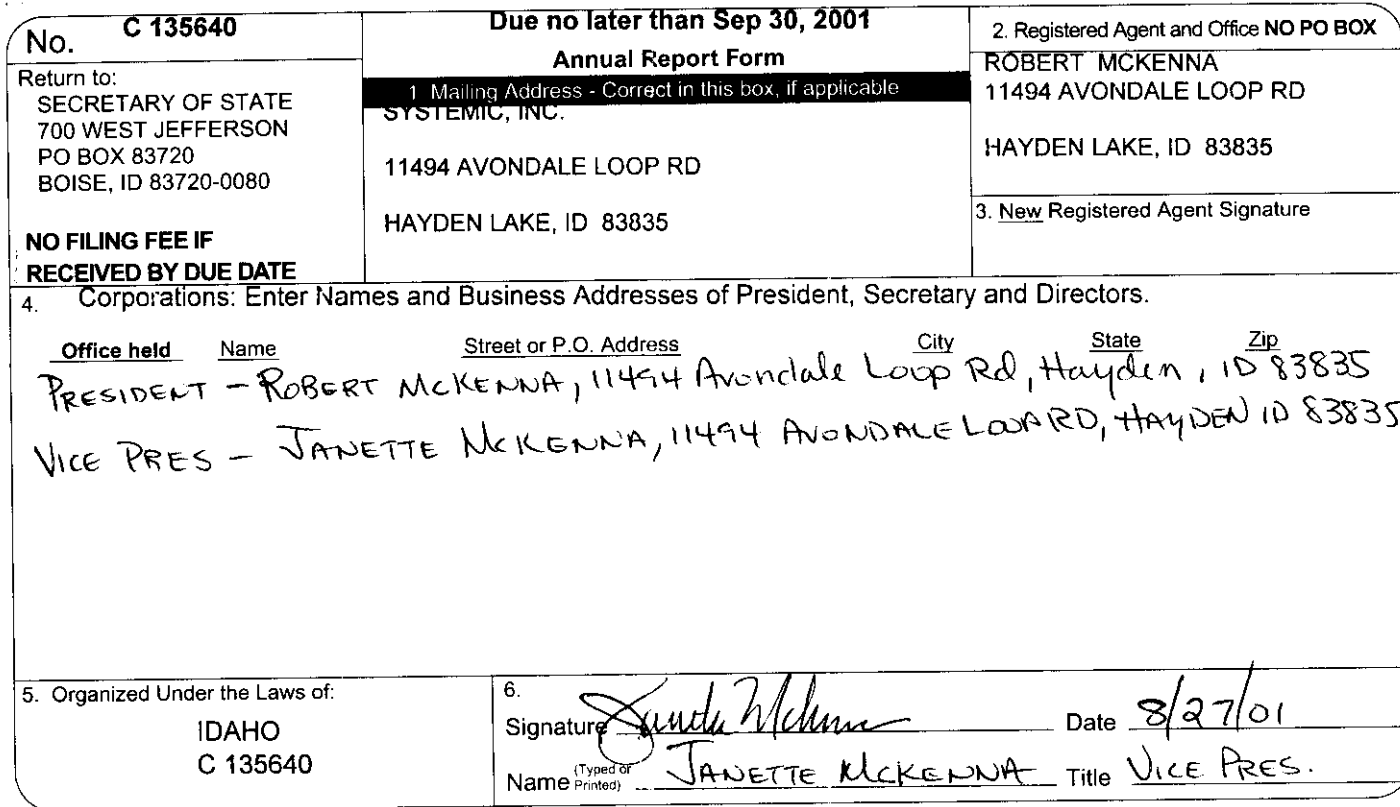 No. C 135640
Return to:
SECRETARY OF STATE
700 WEST JEFFERSON
PO BOX 83720
BOISE, ID 83720-0080
NO FILING FEE IF
RECEIVED BY DUE DATE
Due no later than Sep 30, 2001
Annual Report Form
1 Mailing Address - Correct in this box, if applicable
SYSTEMIC, INC.
11494 AVONDALE LOOP RD
HAYDEN LAKE, ID 83835
2. Registered Agent and Office NO PO BOX
ROBERT MCKENNA
11494 AVONDALE LOOP RD
HAYDEN LAKE, ID 83835
3. New Registered Agent Signature
4. Corporations: Enter Names and Business Addresses of President, Secretary and Directors.
Office held Name Street or P.O. Address City State Zip
PRESIDENT - ROBERT MCKENNA, 11494 Avondale Loop Rd, Hayden, ID 83835
VICE PRES - JANETTE MCKENNA, 11494 AVONDALE LOOP RD, HAYDEN ID 83835
5. Organized Under the Laws of:
IDAHO
C 135640
6.
Signature Date 8/27/01
Name (Typed or Printed) JANETTE MCKENNA Title VICE PRES.